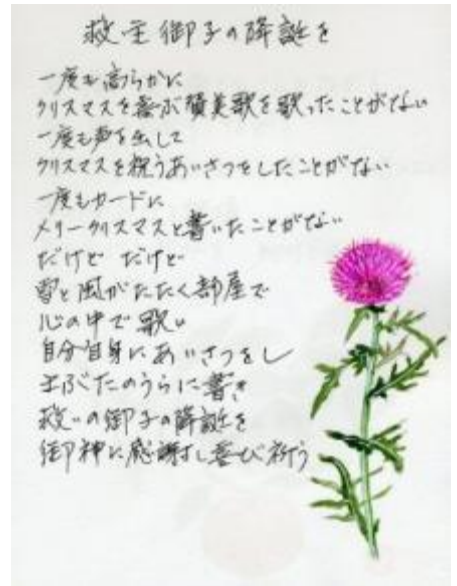 救主御子の降誕を
一度も高らかに
クリスマスを喜ぶ賛美歌を歌ったことがない
一度も声を出して
クリスマスを祝うあいさつをしたことがない
一度もカードに
メリークリスマスと書いたことがない
だけど だけど
雪と風がたたく部屋で
心の中で歌い
自分自身にあいさつをし
まぶたのうらに書き
救いの御子の降誕を
御神に感謝し喜び祈う